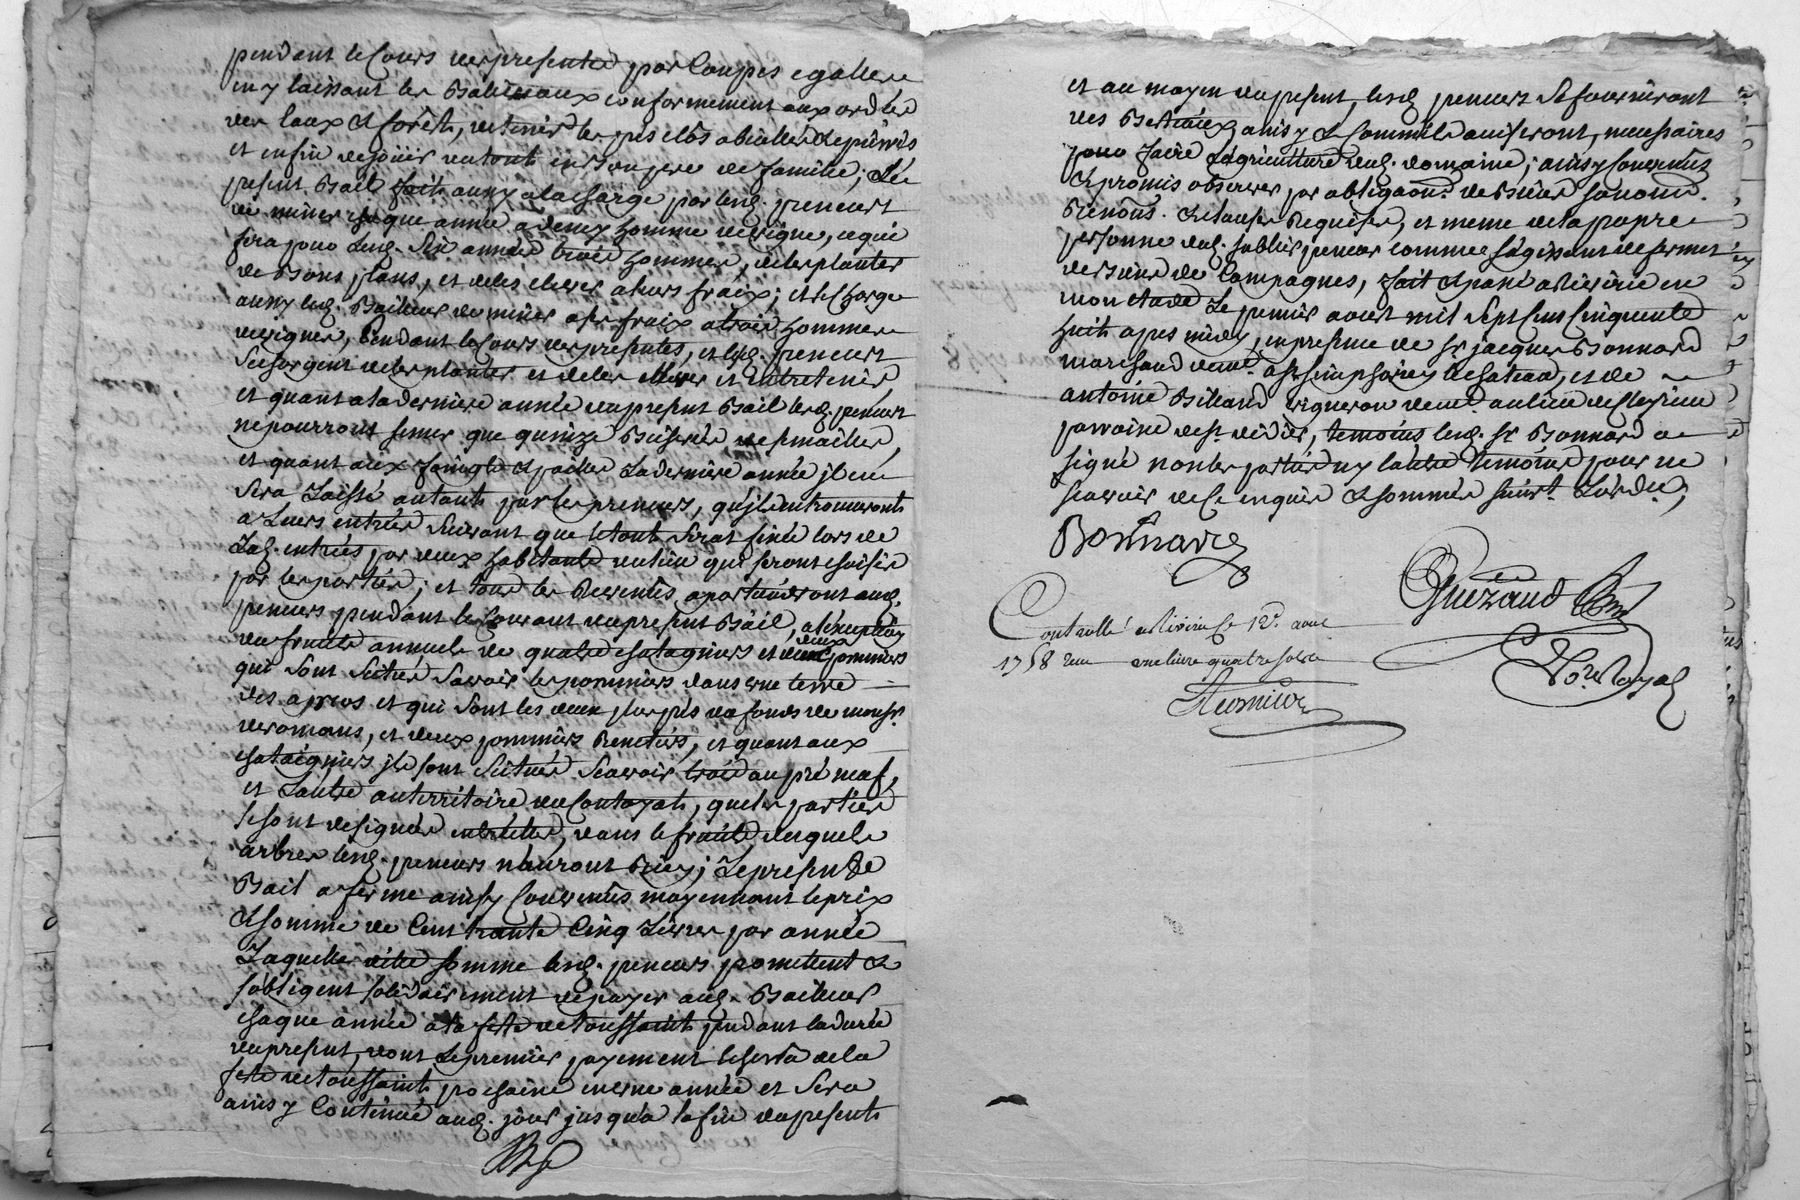 pendant le Cours des presentes par Coupes egalles
en y laissant les Baliveaux conformement aux ord.ces
des Eaux & forêts, de tenir les prés clos
et enfin de joüir du tout en bon pere de famille; Le
present Bail fait aussy a la charge par lesd. preneurs
de miner chaque année a deux hommes de vigne, ce qui
fera pour lesd. Six années hommes, de les planter
de Bons plans, et de les elever a leurs fraix; et Charge
aussy led. Bailleur de miner a ses fraix a trois hommes
de vignes, Pendant le Cours des presentes, et lesd. preneurs
Se chargent de les planter et de les elever et entretenir
et quant a la derniere année du present Bail lesd. preneurs
ne pourront semer que quinze
et quant aux foings & pailles La derniere année il en
Sera Laissé autant par les preneurs, qu'ils en trouveront
a Leurs entrée Suivant que le tout Serat fixé lors de
Lad. entrées par deux habitants du lieu qui seront choisis
par les parties; et tous les Recoltes apartiendront aud.
preneurs pendant le Courant du present Bail, a l'exception
du fruits annuels de quatre chataigniers et deux pommiers
qui Sont Scitués Scavoir les pommiers dans une terre
des apres et qui Sont les deux plus prés du fonds de monsr.
deromans, et deux pommiers Renetiers, et quant aux
chataigniers ils sont Scitués Scavoir trois au pré neuf,
et Lautre au territoire du Contoyat, que les parties
se sont designées entrelles, dans le fruits desquels
arbres lesd. preneurs n'auront Rien; Le present
Bail a ferme ainsy Convenus moyennant le prix
& somme de Cent trante Cinq Livres par année
Laquelle ditte somme lesd. preneurs promettent &
s'obligent solidairement de payer aud. Bailleur
chaque année a la fete de Toussaints pendant la durée
du present, dont Le premier payement se fera de la
fete de Toussaints prochaine en une année et Sera
ainsy Continué aud. jour jusqu'a la fin du presents
et au moyen du present, lesd. preneurs se fourniront
des Bestiaux, ainsy & Comme ils aviseront, necessaires
pour faire L'agriculture dud. domaine; ainsy Convenus
& promis observer par obligaons. de Biens
Renons. & clause Requises, et meme de la propre
personne dud. sablier preneur comme s'agissant de fermes
de biens de Campagnes, fait & passé a Riverie en
mon etude Le premier aoust mil Sept Cens Cinquante
huit apres midy, en presence de sr. jacques Bonnard
marchand demt. a St. simphorien le chateau, et de
antoine Billand vigneron demt. au lieu de
parroisse de st. didier, temoins led. sr. Bonnard a
signé non les parties ny lautre temoins pour ne
scavoir de ce enquis & sommés suivt. L'ord.ce;
Bonnard
Guezaud
Controllé a Riverie le 12e. aout
1758 Reçu une livre quatre sols
No.re Royal